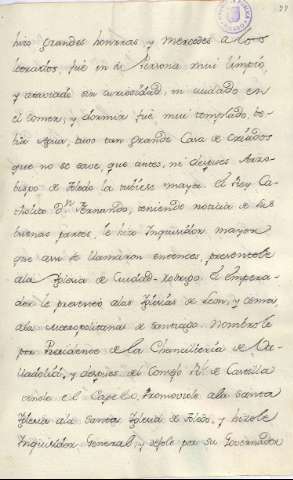 hizo grandes honrras, y mercedes a los
letrados, fue in de Persona mui limpio,
y ataviado sin curiosidad, ni cuidado en
el comer, y dormir fue mui templado, be-
bia Agua, tuvo tan grande Casa de criados
que no se save, que antes, ni despues Arzo-
bispo de Toledo la tubiese mayor. el Rey Ca-
tholico Dn. Fernando, teniendo noticia de sus
buenas partes, le hizo Inquisidor mayor
que assi se llamaron entonces, presentole
ala Iglesia de Ciudad-Rodrigo. el Empera-
dor le presentó alas Iglesias de Leon, y Osma,
ala metropolitana de Santiago. Nombrole
por Presidente de la Chancilleria de Va-
lladolid, y despues del Consejo Rl. de Castilla
el Capelo. Promoviole ala santa
Iglesia ala santa Iglesia de Toledo, y hizole
Inquisidor General, y dejole por su Governador